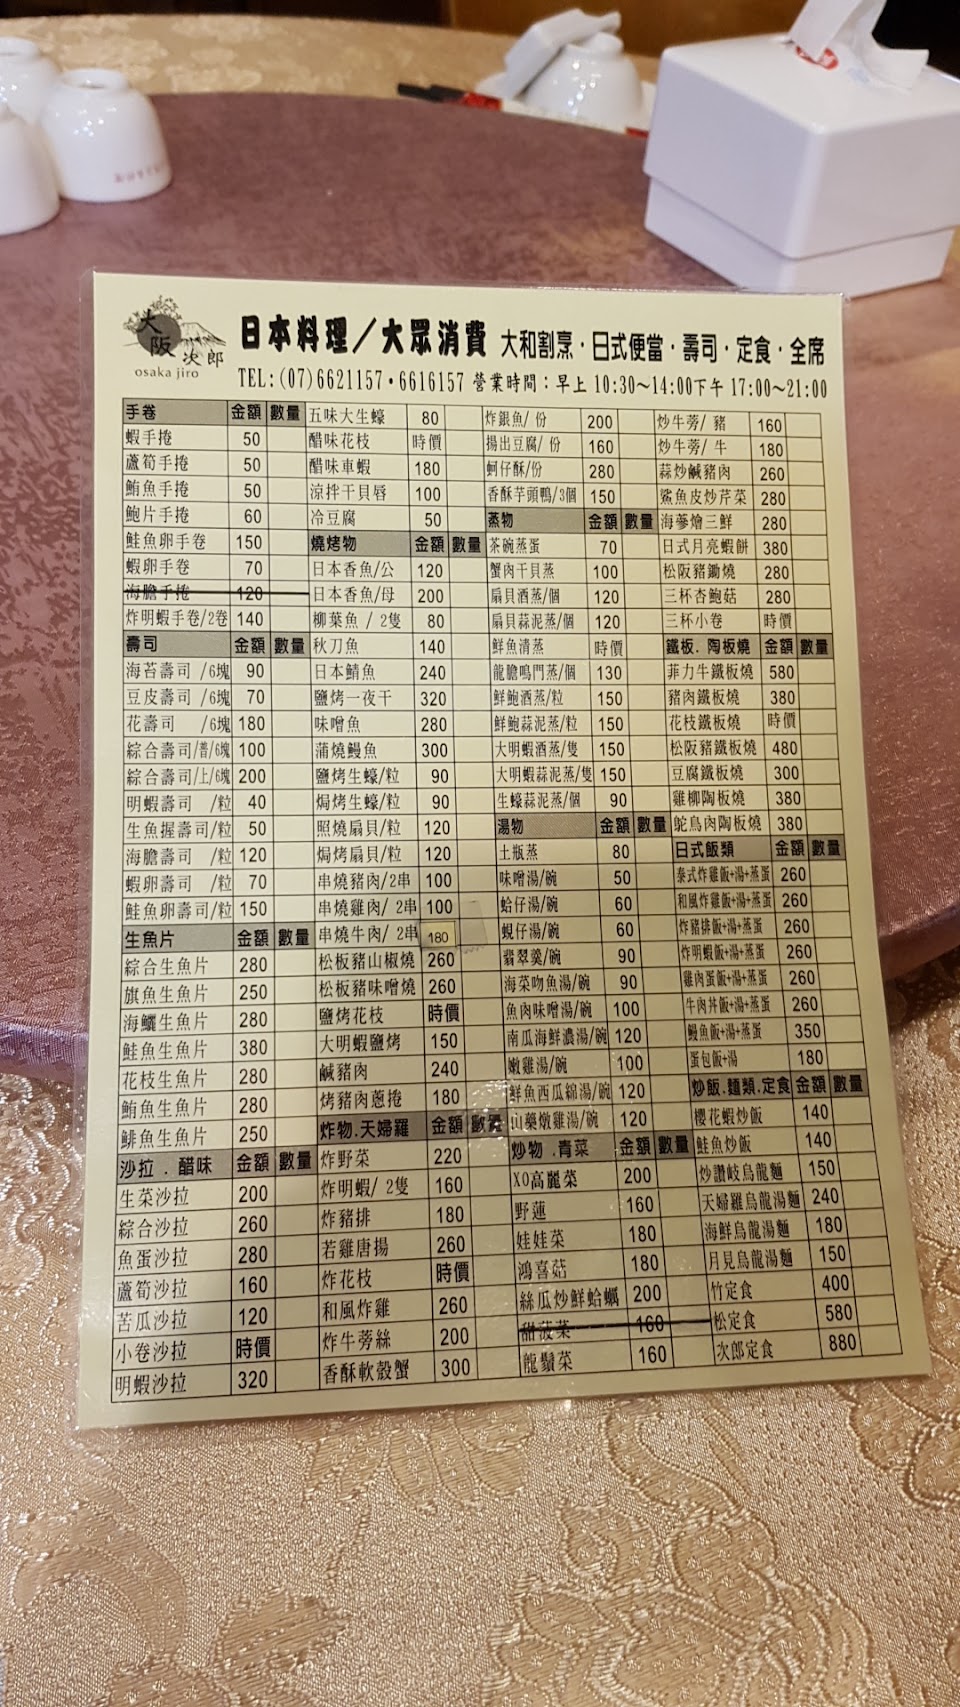 大阪次郎
osaka jiro
日本料理／大眾消費 大和割烹·日式便當·壽司·定食·全席
TEL:(07)6621157·6616157 營業時間：早上 10:30~14:00下午 17:00~21:00
手卷 金額 數量
蝦手捲 50
蘆筍手捲 50
鮪魚手捲 50
鮑片手捲 60
鮭魚卵手卷 150
蝦卵手卷 70
海膽手捲 120
炸明蝦手卷/2卷 140
壽司 金額 數量
海苔壽司 /6塊 90
豆皮壽司 /6塊 70
花壽司 /6塊 180
綜合壽司/普/6塊 100
綜合壽司/上/6塊 200
明蝦壽司 /粒 40
生魚握壽司/粒 50
海膽壽司 /粒 120
蝦卵壽司 /粒 70
鮭魚卵壽司/粒 150
生魚片 金額 數量
綜合生魚片 280
旗魚生魚片 250
海鱺生魚片 280
鮭魚生魚片 380
花枝生魚片 280
鮪魚生魚片 280
鯡魚生魚片 250
沙拉．醋味 金額 數量
生菜沙拉 200
綜合沙拉 260
魚蛋沙拉 280
蘆筍沙拉 160
苦瓜沙拉 120
小卷沙拉 時價
明蝦沙拉 320
五味大生蠔 80
醋味花枝 時價
醋味車蝦 180
涼拌干貝唇 100
冷豆腐 50
燒烤物 金額 數量
日本香魚/公 120
日本香魚/母 200
柳葉魚 / 2隻 80
秋刀魚 140
日本鯖魚 240
鹽烤一夜干 320
味噌魚 280
蒲燒鰻魚 300
鹽烤生蠔/粒 90
焗烤生蠔/粒 90
照燒扇貝/粒 120
焗烤扇貝/粒 120
串燒豬肉/2串 100
串燒雞肉/ 2串 100
串燒牛肉/ 2串 180
松板豬山椒燒 260
松板豬味噌燒 260
鹽烤花枝 時價
大明蝦鹽烤 150
鹹豬肉 240
烤豬肉蔥捲 180
炸物.天婦羅 金額 數量
炸野菜 220
炸明蝦/ 2隻 160
炸豬排 180
若雞唐揚 260
炸花枝 時價
和風炸雞 260
炸牛蒡絲 200
香酥軟殼蟹 300
炸銀魚/ 份 200
揚出豆腐/ 份 160
蚵仔酥/份 280
香酥芋頭鴨/3個 150
蒸物 金額 數量
茶碗蒸蛋 70
蟹肉干貝蒸 100
扇貝酒蒸/個 120
扇貝蒜泥蒸/個 120
鮮魚清蒸 時價
龍膽鳴門蒸/個 130
鮮鮑酒蒸/粒 150
鮮鮑蒜泥蒸/粒 150
大明蝦酒蒸/隻 150
大明蝦蒜泥蒸/隻 150
生蠔蒜泥蒸/個 90
湯物 金額 數量
土瓶蒸 80
味噌湯/碗 50
蛤仔湯/碗 60
蜆仔湯/碗 60
翡翠羹/碗 90
海菜吻魚湯/碗 90
魚肉味噌湯/碗 100
南瓜海鮮濃湯/碗 120
嫩雞湯/碗 100
鮮魚西瓜綿湯/碗 120
山藥燉雞湯/碗 120
炒物 .青菜 金額 數量
XO高麗菜 200
野蓮 160
娃娃菜 180
鴻喜菇 180
絲瓜炒鮮蛤蠣 200
甜菠菜 160
龍鬚菜 160
炒牛蒡/ 豬 160
炒牛蒡/ 牛 180
蒜炒鹹豬肉 260
鯊魚皮炒芹菜 280
海蔘燴三鮮 280
日式月亮蝦餅 380
松阪豬鋤燒 280
三杯杏鮑菇 280
三杯小卷 時價
鐵板. 陶板燒 金額 數量
菲力牛鐵板燒 580
豬肉鐵板燒 380
花枝鐵板燒 時價
松阪豬鐵板燒 480
豆腐鐵板燒 300
雞柳陶板燒 380
鴕鳥肉陶板燒 380
日式飯類 金額 數量
泰式炸雞飯+湯+蒸蛋 260
和風炸雞飯+湯+蒸蛋 260
炸豬排飯+湯+蒸蛋 260
炸明蝦飯+湯+蒸蛋 260
雞肉蛋飯+湯+蒸蛋 260
牛肉丼飯+湯+蒸蛋 260
鰻魚飯+湯+蒸蛋 350
蛋包飯+湯 180
炒飯.麵類.定食 金額 數量
櫻花蝦炒飯 140
鮭魚炒飯 140
炒讚岐烏龍麵 150
天婦羅烏龍湯麵 240
海鮮烏龍湯麵 180
月見烏龍湯麵 150
竹定食 400
松定食 580
次郎定食 880